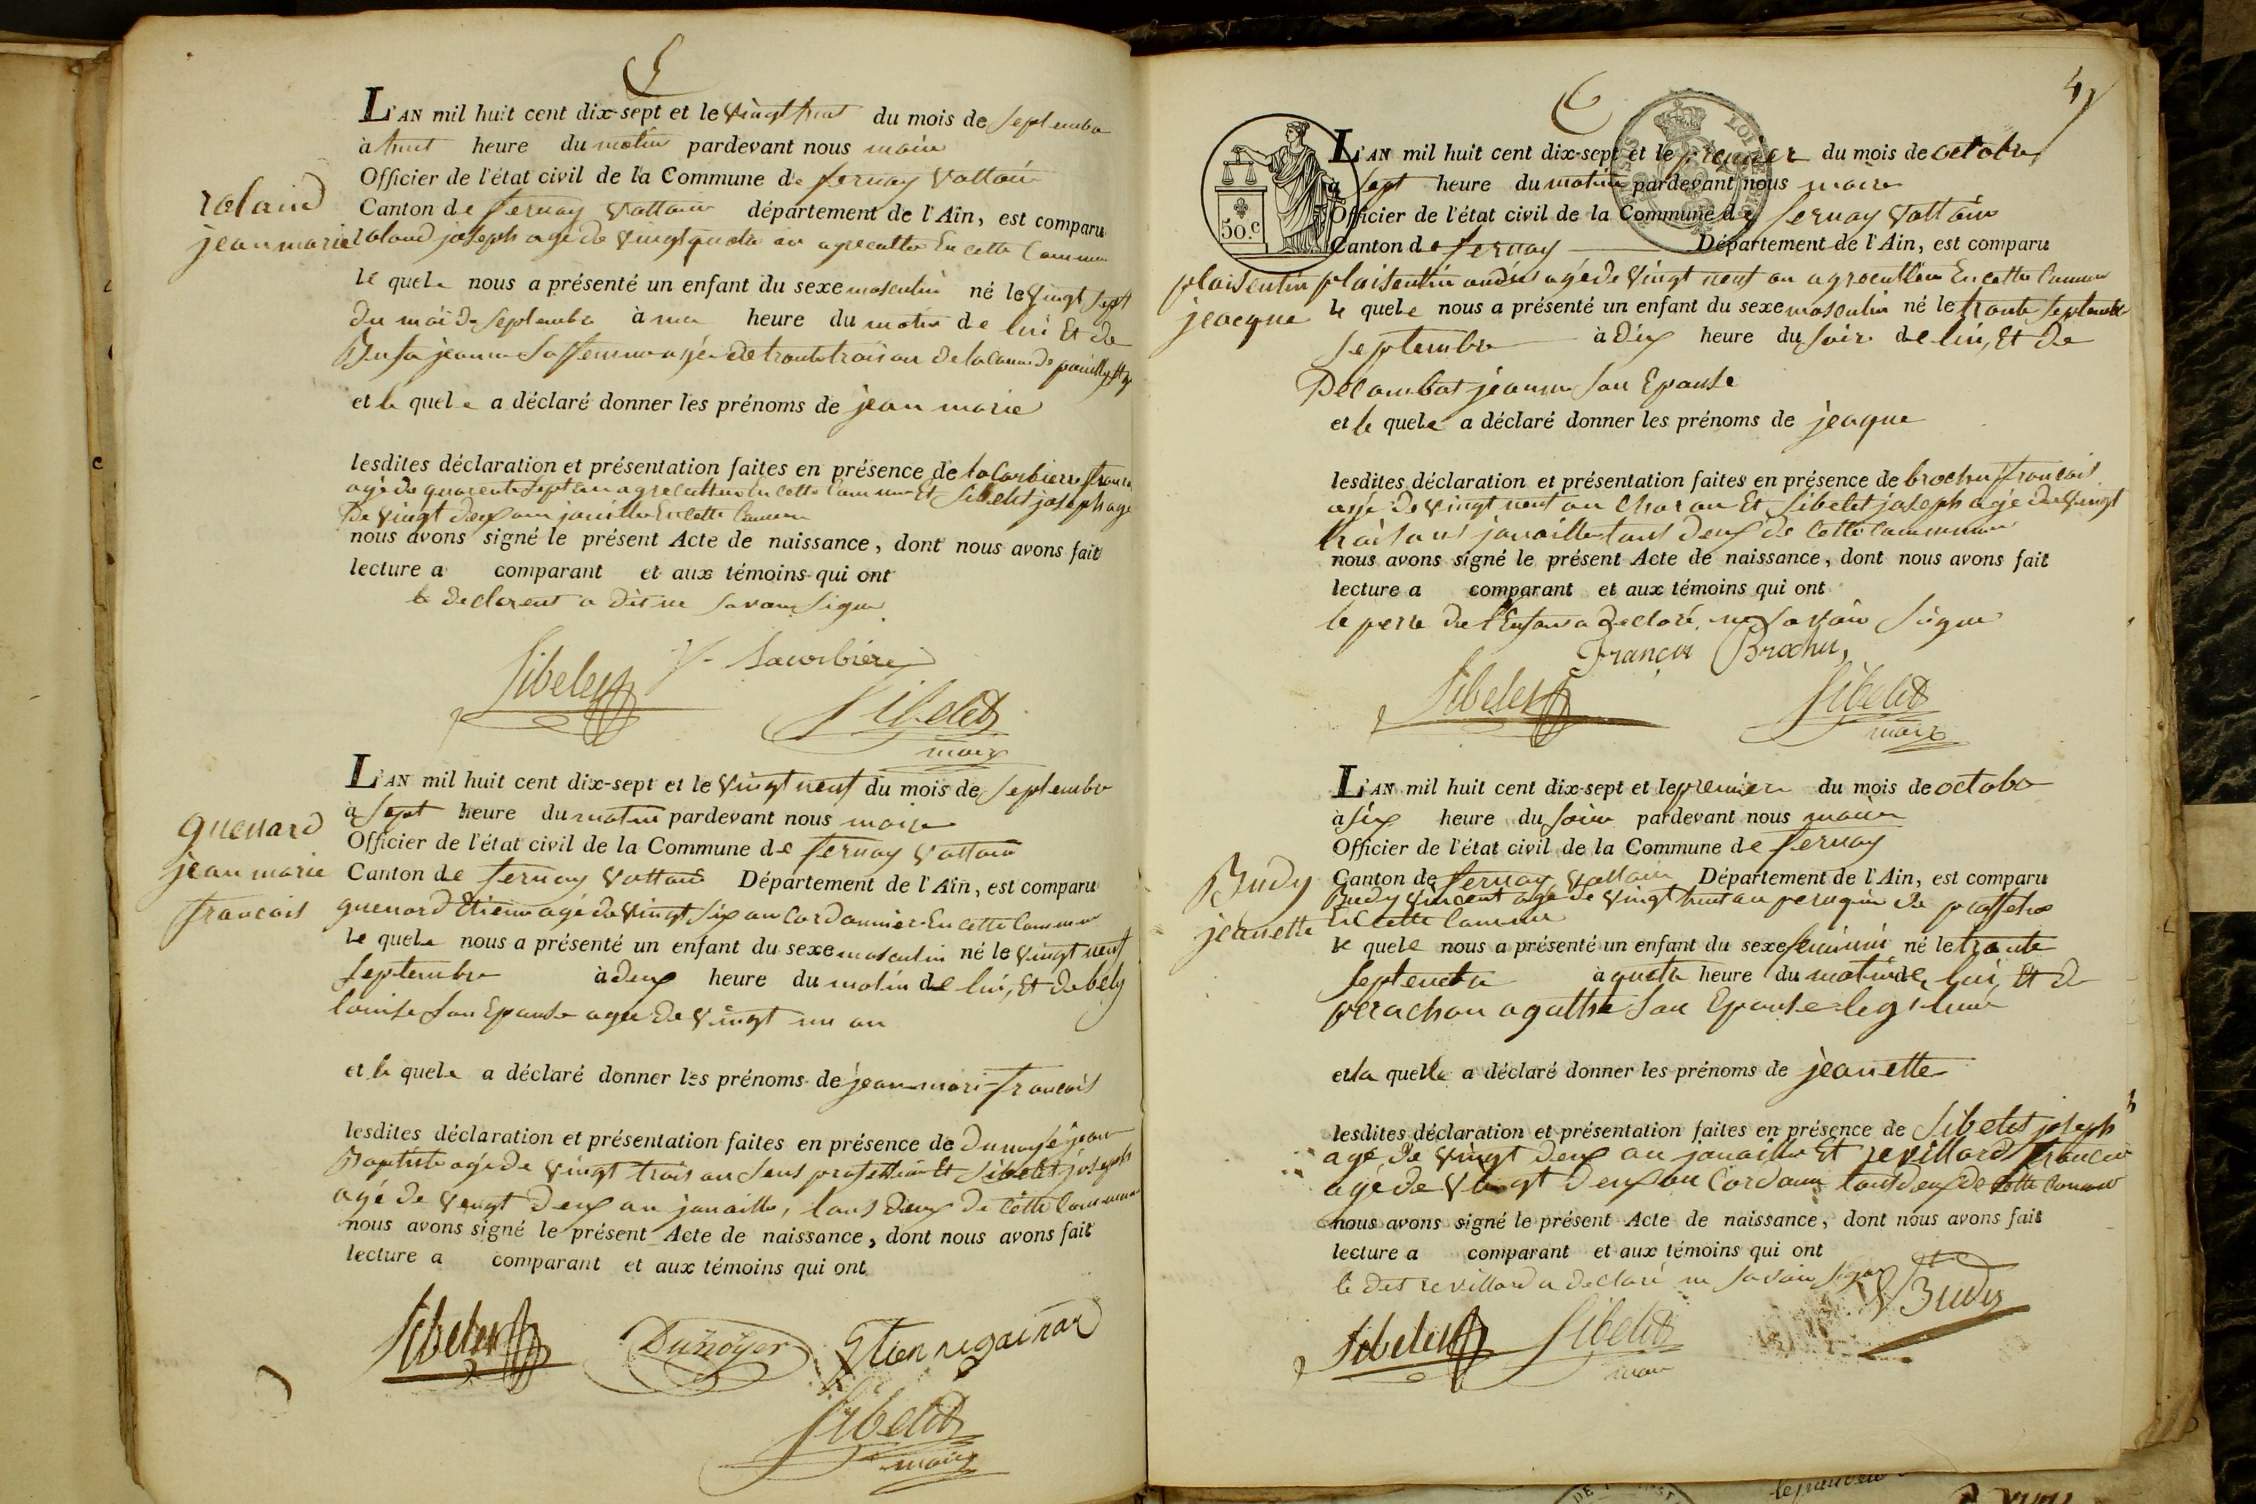 L'AN mil huit cent dix-sept et le vingt huit du mois de septembre
à huit heure du matin pardevant nous maire
Officier de l'état civil de la Commune de fernay Voltaire
roland
Canton de fernay Voltaire département de l'Ain, est comparu
jean marie
roland joseph agé de vingt quatre an agreculteur En cette Commune
le quele nous a présenté un enfant du sexe masculin né le vingt sept
du moi de septembre à une heure du matin de lui Et de
jeanne sa femme agée de trante trois an de la Comune de
et le quele a déclaré donner les prénoms de jean marie
lesdites déclaration et présentation faites en présence de lacorbiere
agé de quarente sept an agreculteur En cette Commune Et Sibelet joseph agé
De vingt deux an jouaillier En cette Commune
nous avons signé le présent Acte de naissance, dont nous avons fait
lecture a comparant et aux témoins qui ont
le declarent a dit ne savoir signer
Sibelet Lacorbiere
Sibelet
maire
L'AN mil huit cent dix-sept et le vingt neuf du mois de septembre
à sept heure du matin pardevant nous maire
guenard
Officier de l'état civil de la Commune de fernay Voltaire
jean marie
Canton de fernay Voltaire Département de l'Ain, est comparu
francois
guenard Etienne agé de vingt six an Cordonnier En cette Commune
le quele nous a présenté un enfant du sexe masculin né le vingt neuf
septembre à deux heure du matin de lui, Et de bely
louise son Epouse agee de vingt un an
et le quele a déclaré donner les prénoms de jean mari francois
lesdites déclaration et présentation faites en présence de Dunoyé jean
Baptiste agé de vingt trois an sens profession Et Sibelet joseph
agé de vengt deux an jouaillier, tous deux de cette Commune
nous avons signé le présent Acte de naissance, dont nous avons fait
lecture a comparant et aux témoins qui ont
Sibelet Dunoyer
Sibelet
maire
4
L'AN mil huit cent dix-sept et le premier du mois de octobre
à sept heure du matin pardevant nous maire
Officier de l'état civil de la Commune de fernay Voltaire
50.c
Canton de fernay Département de l'Ain, est comparu
plaisentin
jeacque
plaisentin agé de vingt neuf an agreculteur En cette Commune
le quele nous a présenté un enfant du sexe masculin né le trante septembre
septembre à dix heure du soir de lui, Et de
Decombat jeanne son Epouse
et le quele a déclaré donner les prénoms de jeaque
lesdites déclaration et présentation faites en présence de brocher francois
agé de vingt neuf an Charon Et Sibelet joseph agé de vingt
trois ans jouaillier tous deux de cette Commune
nous avons signé le présent Acte de naissance, dont nous avons fait
lecture a comparant et aux témoins qui ont
le pere de l'Enfans a declaré ne savoir signer
François Brocher,
Sibelet Sibelet
maire
L'AN mil huit cent dix-sept et le premier du mois de octobre
à six heure du soir pardevant nous maire
Officier de l'état civil de la Commune de fernay
Budy
jeanette
Canton de fernay Voltaire Département de l'Ain, est comparu
Budy Vincent agé de vingt huit an peruquier de
En cette Commune
le quele nous a présenté un enfant du sexe feminin né le trante
septembre à quatre heure du matin de lui, Et de
perachon agathe son Epouse legitime
et la quelle a déclaré donner les prénoms de jeanette
lesdites déclaration et présentation faites en présence de Sibelet joseph
agé de vingt deux an jouaillier Et revillard francois
agé de vingt deux an Cordonnier tous deux de cette Commune
nous avons signé le présent Acte de naissance, dont nous avons fait
lecture a comparant et aux témoins qui ont
le dit revillard a declaré ne savoir signer
Budy
Sibelet Sibelet
maire